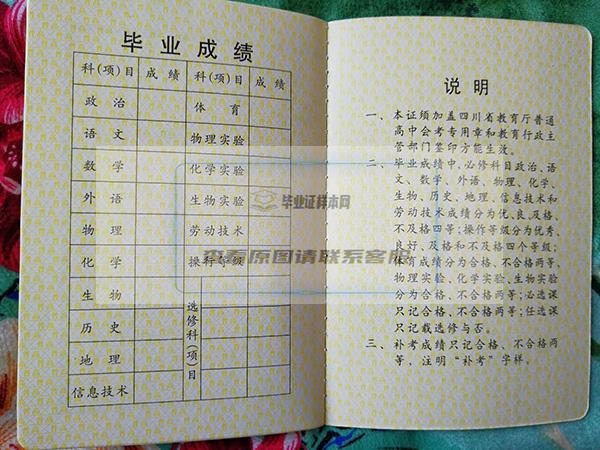 毕业成绩
科(项)目 成绩 科(项)目 成绩
政治 体育
语文 物理实验
数学 化学实验
外语 生物实验
物理 劳动技术
化学 操行等级
生物
历史
地理
信息技术
选修科(项)目
毕业证样本网
查看原图请联系客服
说明
一、本证须加盖四川省教育厅普通
高中会考专用章和教育行政主
管部门签印方能生效。
二、毕业成绩中,必修科目政治、语
文、数学、外语、物理、化学、
生物、历史、地理、信息技术和
劳动技术成绩分为优、良、及格、
不及格四等;操作等级分为优秀、
良好、及格和不及格四个等级;
体育成绩分为合格、不合格两等,
物理实验、化学实验、生物实验
分为合格、不合格两等;必选课
只记合格、不合格两等;任选课
只记载选修与否。
三、补考成绩只记合格、不合格两
等,注明“补考”字样。